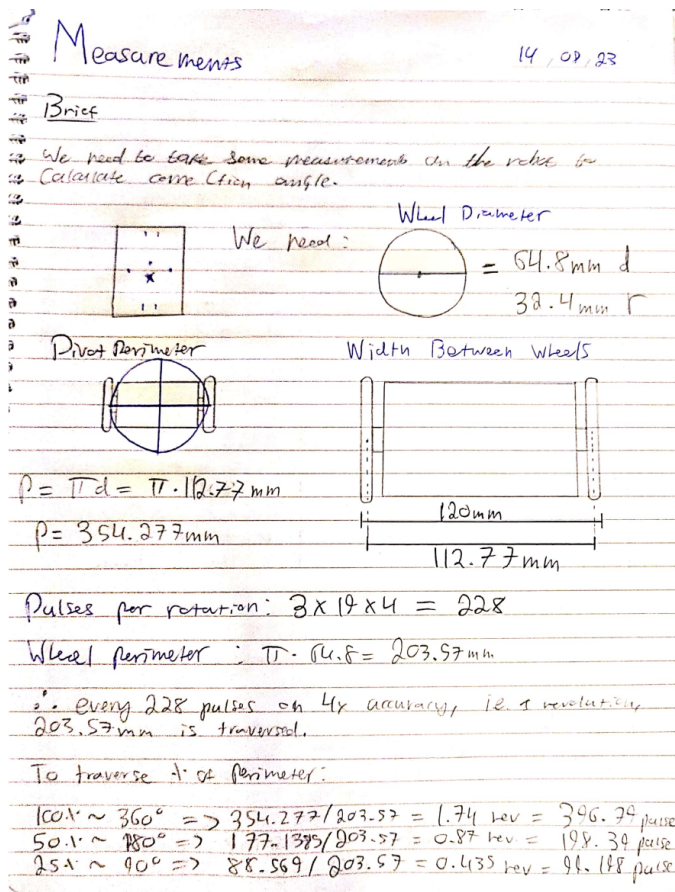 Measurements
14, 08, 23
Brief
We need to take some measurements on the robot to
Calculate correction angle.
Wheel Diameter
We need :
= 64.8mm d
32.4mm r
Pivot Perimeter
Width Between Wheels
P = πd = π·112.77mm
P = 354.277mm
120mm
112.77mm
Pulses per rotation: 3 x 19 x 4 = 228
Wheel perimeter : π · 64.8 = 203.57mm
∴ every 228 pulses on 4x accuracy, i.e. 1 revolution,
203.57mm is traversed.
To traverse % of Perimeter:
100% ~ 360° => 354.277/203.57 = 1.74 rev = 396.79 pulse
50% ~ 180° => 177.1385/203.57 = 0.87 rev = 198.39 pulse
25% ~ 90° => 88.569/203.57 = 0.435 rev = 99.198 pulse